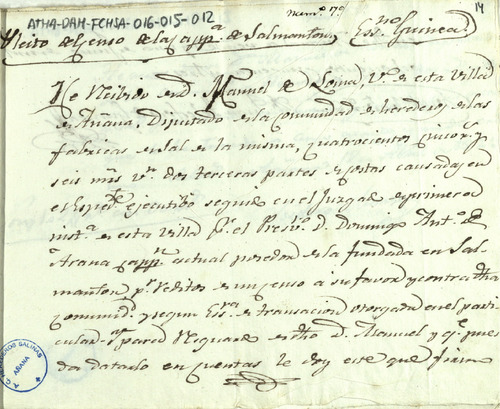 ATHA-DAH-FCHSA-016-015-012
Num.º 79
14
Pleito de Censo de la Capp.ª de Salmanton Ess.no Guinea
He Recibido de D. Manuel de Loma, V.º de esta Villa
de Añana, Diputado de la comunidad de herederos de las
fabricas de sal de la misma, quatrocientos cincon.ta y
seis mrs v.n dos terceras partes de costas causadas en
el Exped.te ejecutibo seguido en el Juzg.do de primera
inst.ª de esta Villa p.r el Presv.º D. Domingo Ant.º de
Arana Capp.n actual poseedor de la fundada en Sal-
manton p.r Reditos de un censo a su favor y contra dha
Comunid.d y segun Ess.ra de transacion otorgada en el parti-
cular. Y para Resguardo de dho D. Manuel y q.e pue-
da datarlo en cuentas le doy este que firmo
A.C. HEREDEROS SALINAS
AÑANA